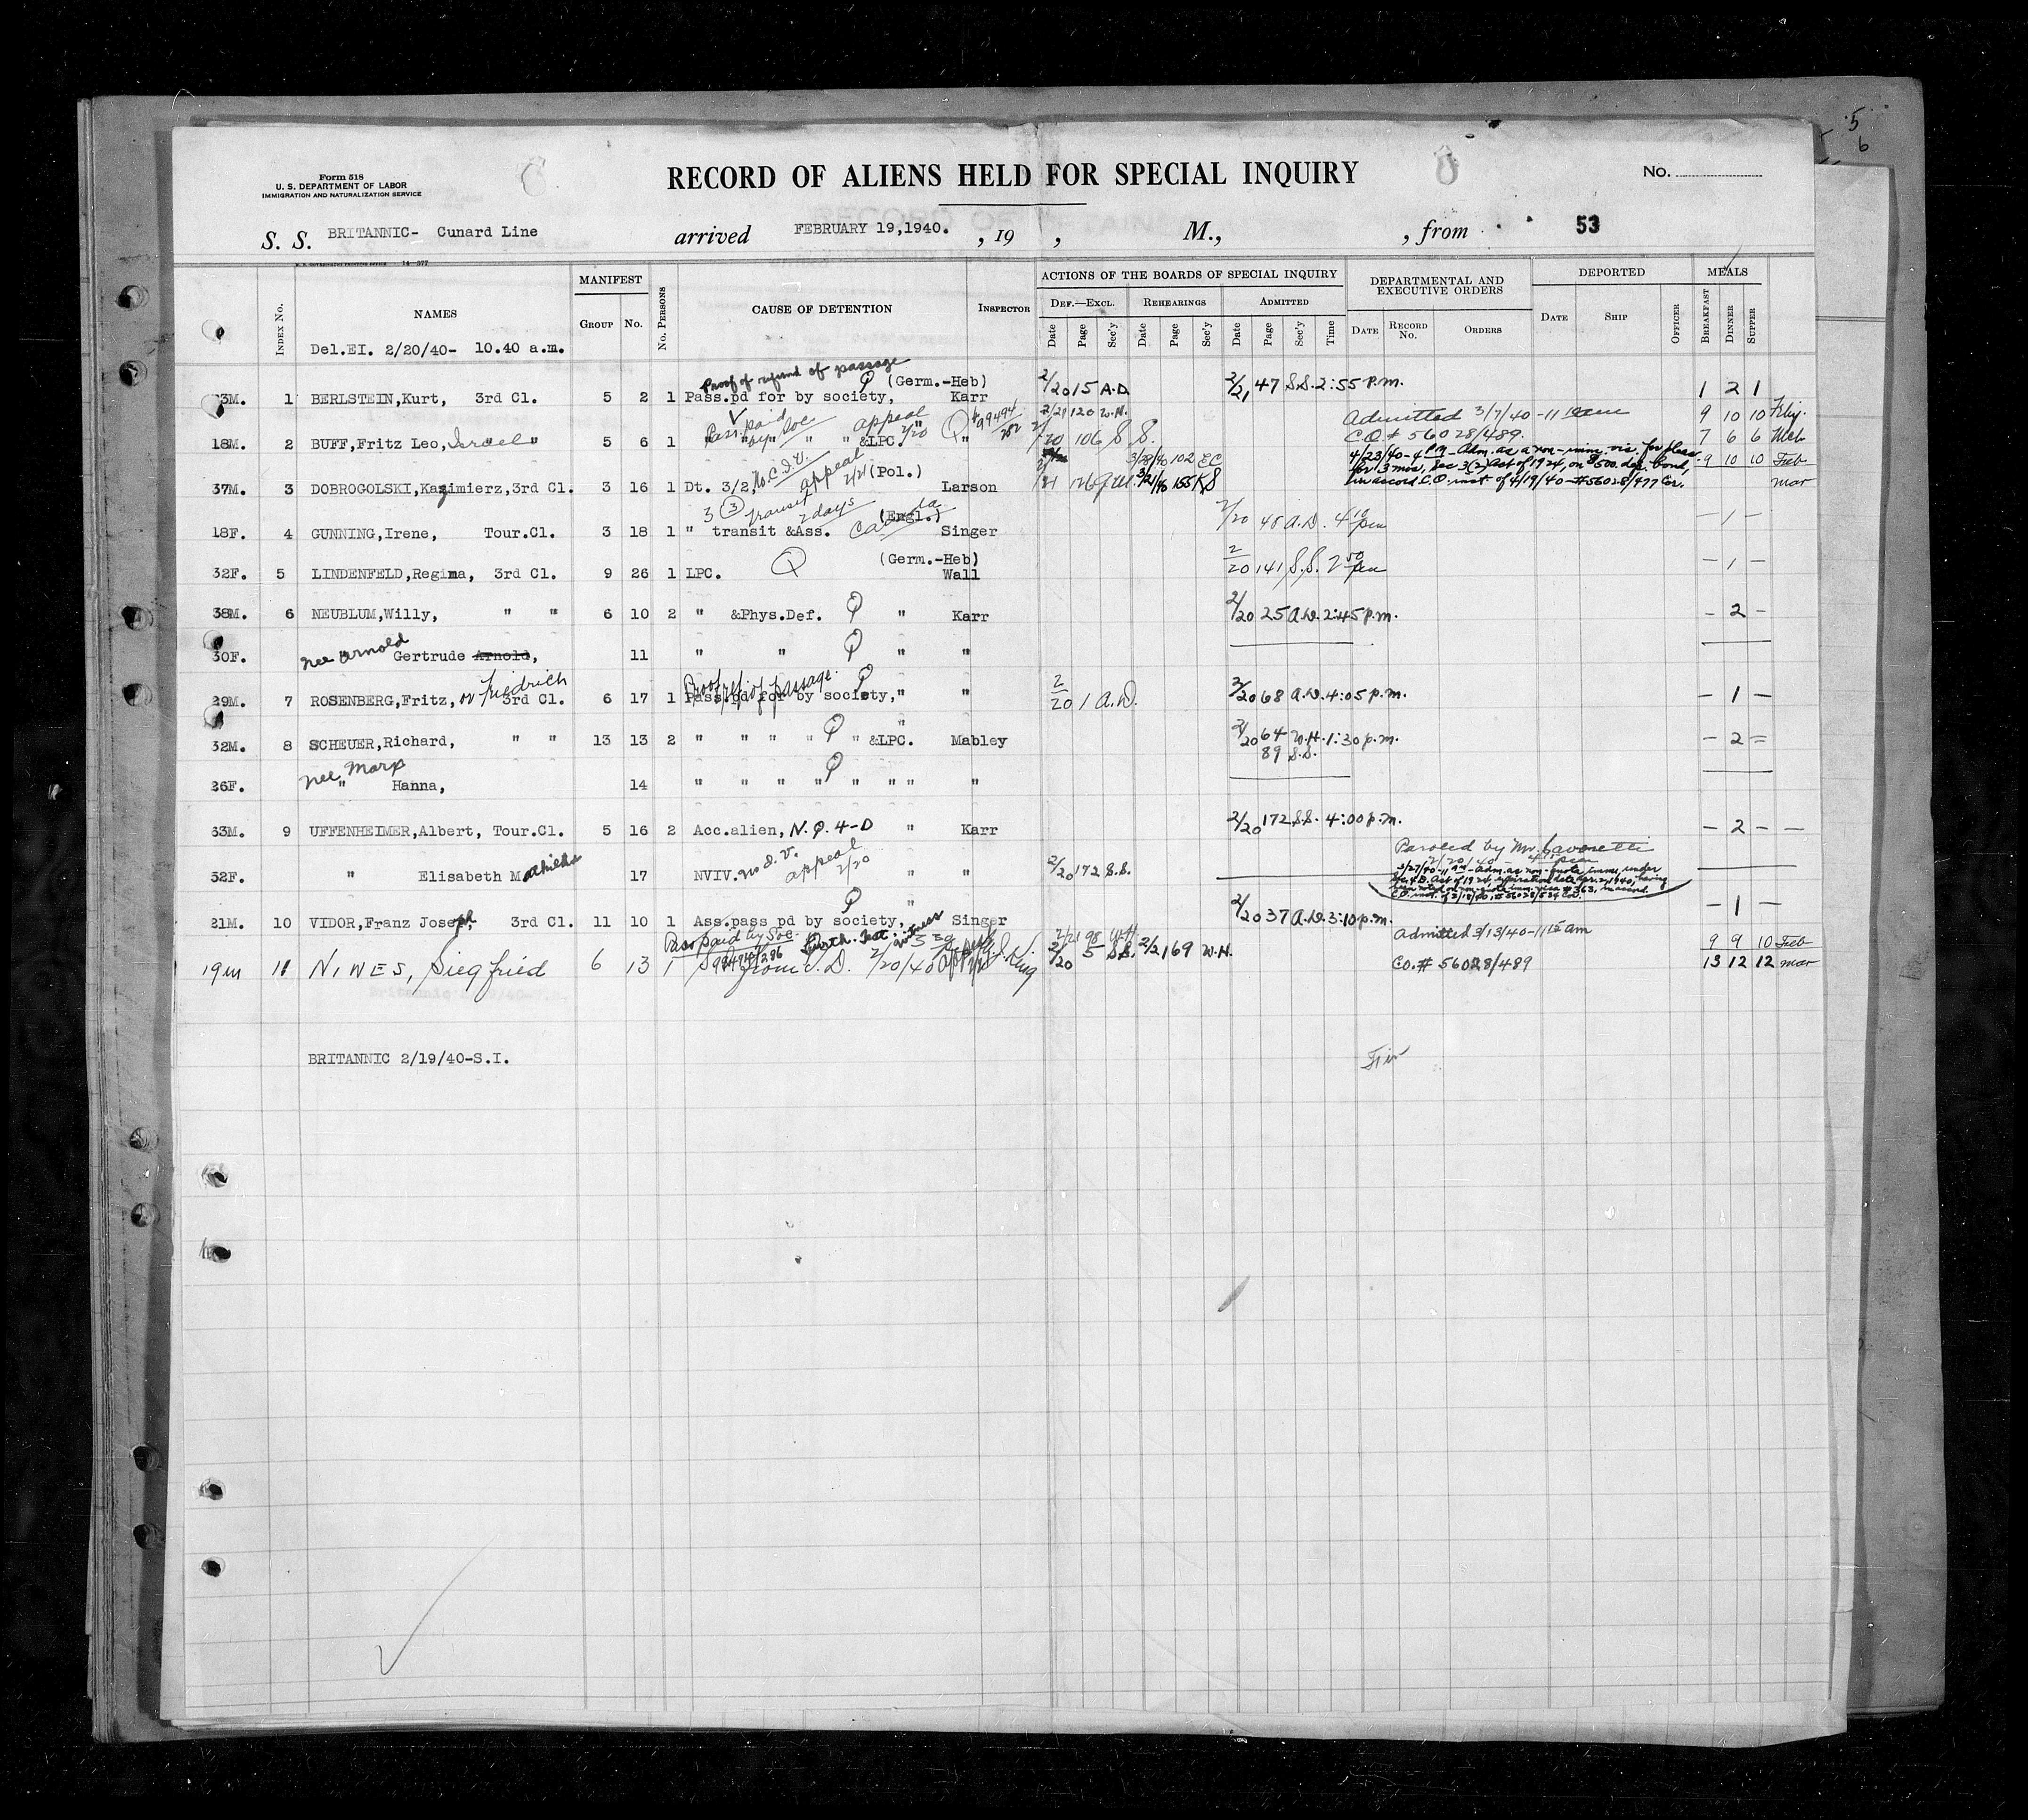 5
6
Form 518
U. S. DEPARTMENT OF LABOR
IMMIGRATION AND NATURALIZATION SERVICE
RECORD OF ALIENS HELD FOR SPECIAL INQUIRY
No.
S. S. BRITANNIC- Cunard Line arrived FEBRUARY 19,1940. , 19 , M., , from 53
U. S. GOVERNMENT PRINTING OFFICE 14—577
INDEX No. NAMES MANIFEST GROUP No. No. PERSONS CAUSE OF DETENTION INSPECTOR
ACTIONS OF THE BOARDS OF SPECIAL INQUIRY
DEF.—EXCL. REHEARINGS ADMITTED
Date Page Sec'y Date Page Sec'y Date Page Sec'y Time
DEPARTMENTAL AND EXECUTIVE ORDERS
DATE RECORD No. ORDERS
DEPORTED
DATE SHIP OFFICER
MEALS
BREAKFAST DINNER SUPPER
Del.EI. 2/20/40- 10.40 a.m.
Proof of refund of passage
(Germ.-Heb)
1 BERLSTEIN,Kurt, 3rd Cl. 5 2 1 Pass.pd for by society, Karr 2/20 15 A.D. 2/21 47 S.S. 2:55 P.m. 1 2 1
Pass. paid by Soc appeal 2/20 99494/282 2/21 120 W.H. Admitted 3/7/40-11 am 9 10 10
18M. 2 BUFF,Fritz Leo, Israel " 5 6 1 " " " " " &LPC. " 2/20 106 S.S. C.O. # 56028/489. 7 6 6 Mch
No. C.I.V. appeal 2/21 (Pol.) 3/28/40 102 EC
4/23/40-4 PM - Adm. as a non-imm. vis. for pleas. 9 10 10 Feb
for 3 mos, Sec 3(2) Act of 1924, on $500. dep. bond,
37M. 3 DOBROGOLSKI,Kazimierz,3rd Cl. 3 16 1 Dt. 3/2, Larson 155 KS in accord C.O. inst. of 4/19/40-#56028/477 Cor. mar
3 (3) Transit 2 days Canada (Engl.)
18F. 4 GUNNING,Irene, Tour.Cl. 3 18 1 " transit &Ass. Singer 2/20 48 A.D. 4 10 pm — 1 —
(Germ.-Heb)
32F. 5 LINDENFELD,Regina, 3rd Cl. 9 26 1 LPC. Wall 2/20 141 S.S. 2 50 pm — 1 —
38M. 6 NEUBLUM,Willy, " " 6 10 2 " &Phys.Def. " Karr 2/20 25 A.D. 2:45 p.m. — 2 —
nee Arnold
30F. Gertrude Arnold, 11 " " " "
or Friedrich Proof ref. of passage
29M. 7 ROSENBERG,Fritz, 3rd Cl. 6 17 1 Pass.pd for by society," " 2/20 1 A.D. 2/20 68 A.D. 4:05 p.m. — 1 —
32M. 8 SCHEUER,Richard, " " 13 13 2 " " " " " &LPC. " Mabley 2/20 64 W.H. 1:30 p.m. — 2 =
89 S.S.
nee Marx
26F. " Hanna, 14 " " " " " " " "
63M. 9 UFFENHEIMER,Albert, Tour.Cl. 5 16 2 Acc.alien, N.Q. 4-D " Karr 2/20 172 S.S. 4:00 p.m. — 2 — —
Paroled by Mr.
2/20/40
52F. " Elisabeth Mathilde 17 NVIV. no I.V. appeal 2/20 " " 2/20 172 S.S.
3/27/40-11 AM - Adm. as non-quota imm. under
Sec. 4 D. Act of 1924,
21M. 10 VIDOR,Franz Joseph, 3rd Cl. 11 10 1 Ass.pass pd by society, " Singer 2/20 37 A.D. 3:10 p.m. — 1 —
Pass paid by Soc. Furth. Test. witness 2/21 98 W.H. Admitted 3/13/40-11 15 am 9 9 10 Feb
99494/286
19m 11 NIWES, Siegfried 6 13 1 from A.D. 2/20/40 King 2/20 5 S.S. 2/21 69 W.H. CO.# 56028/489 13 12 12 mar
BRITANNIC 2/19/40-S.I.